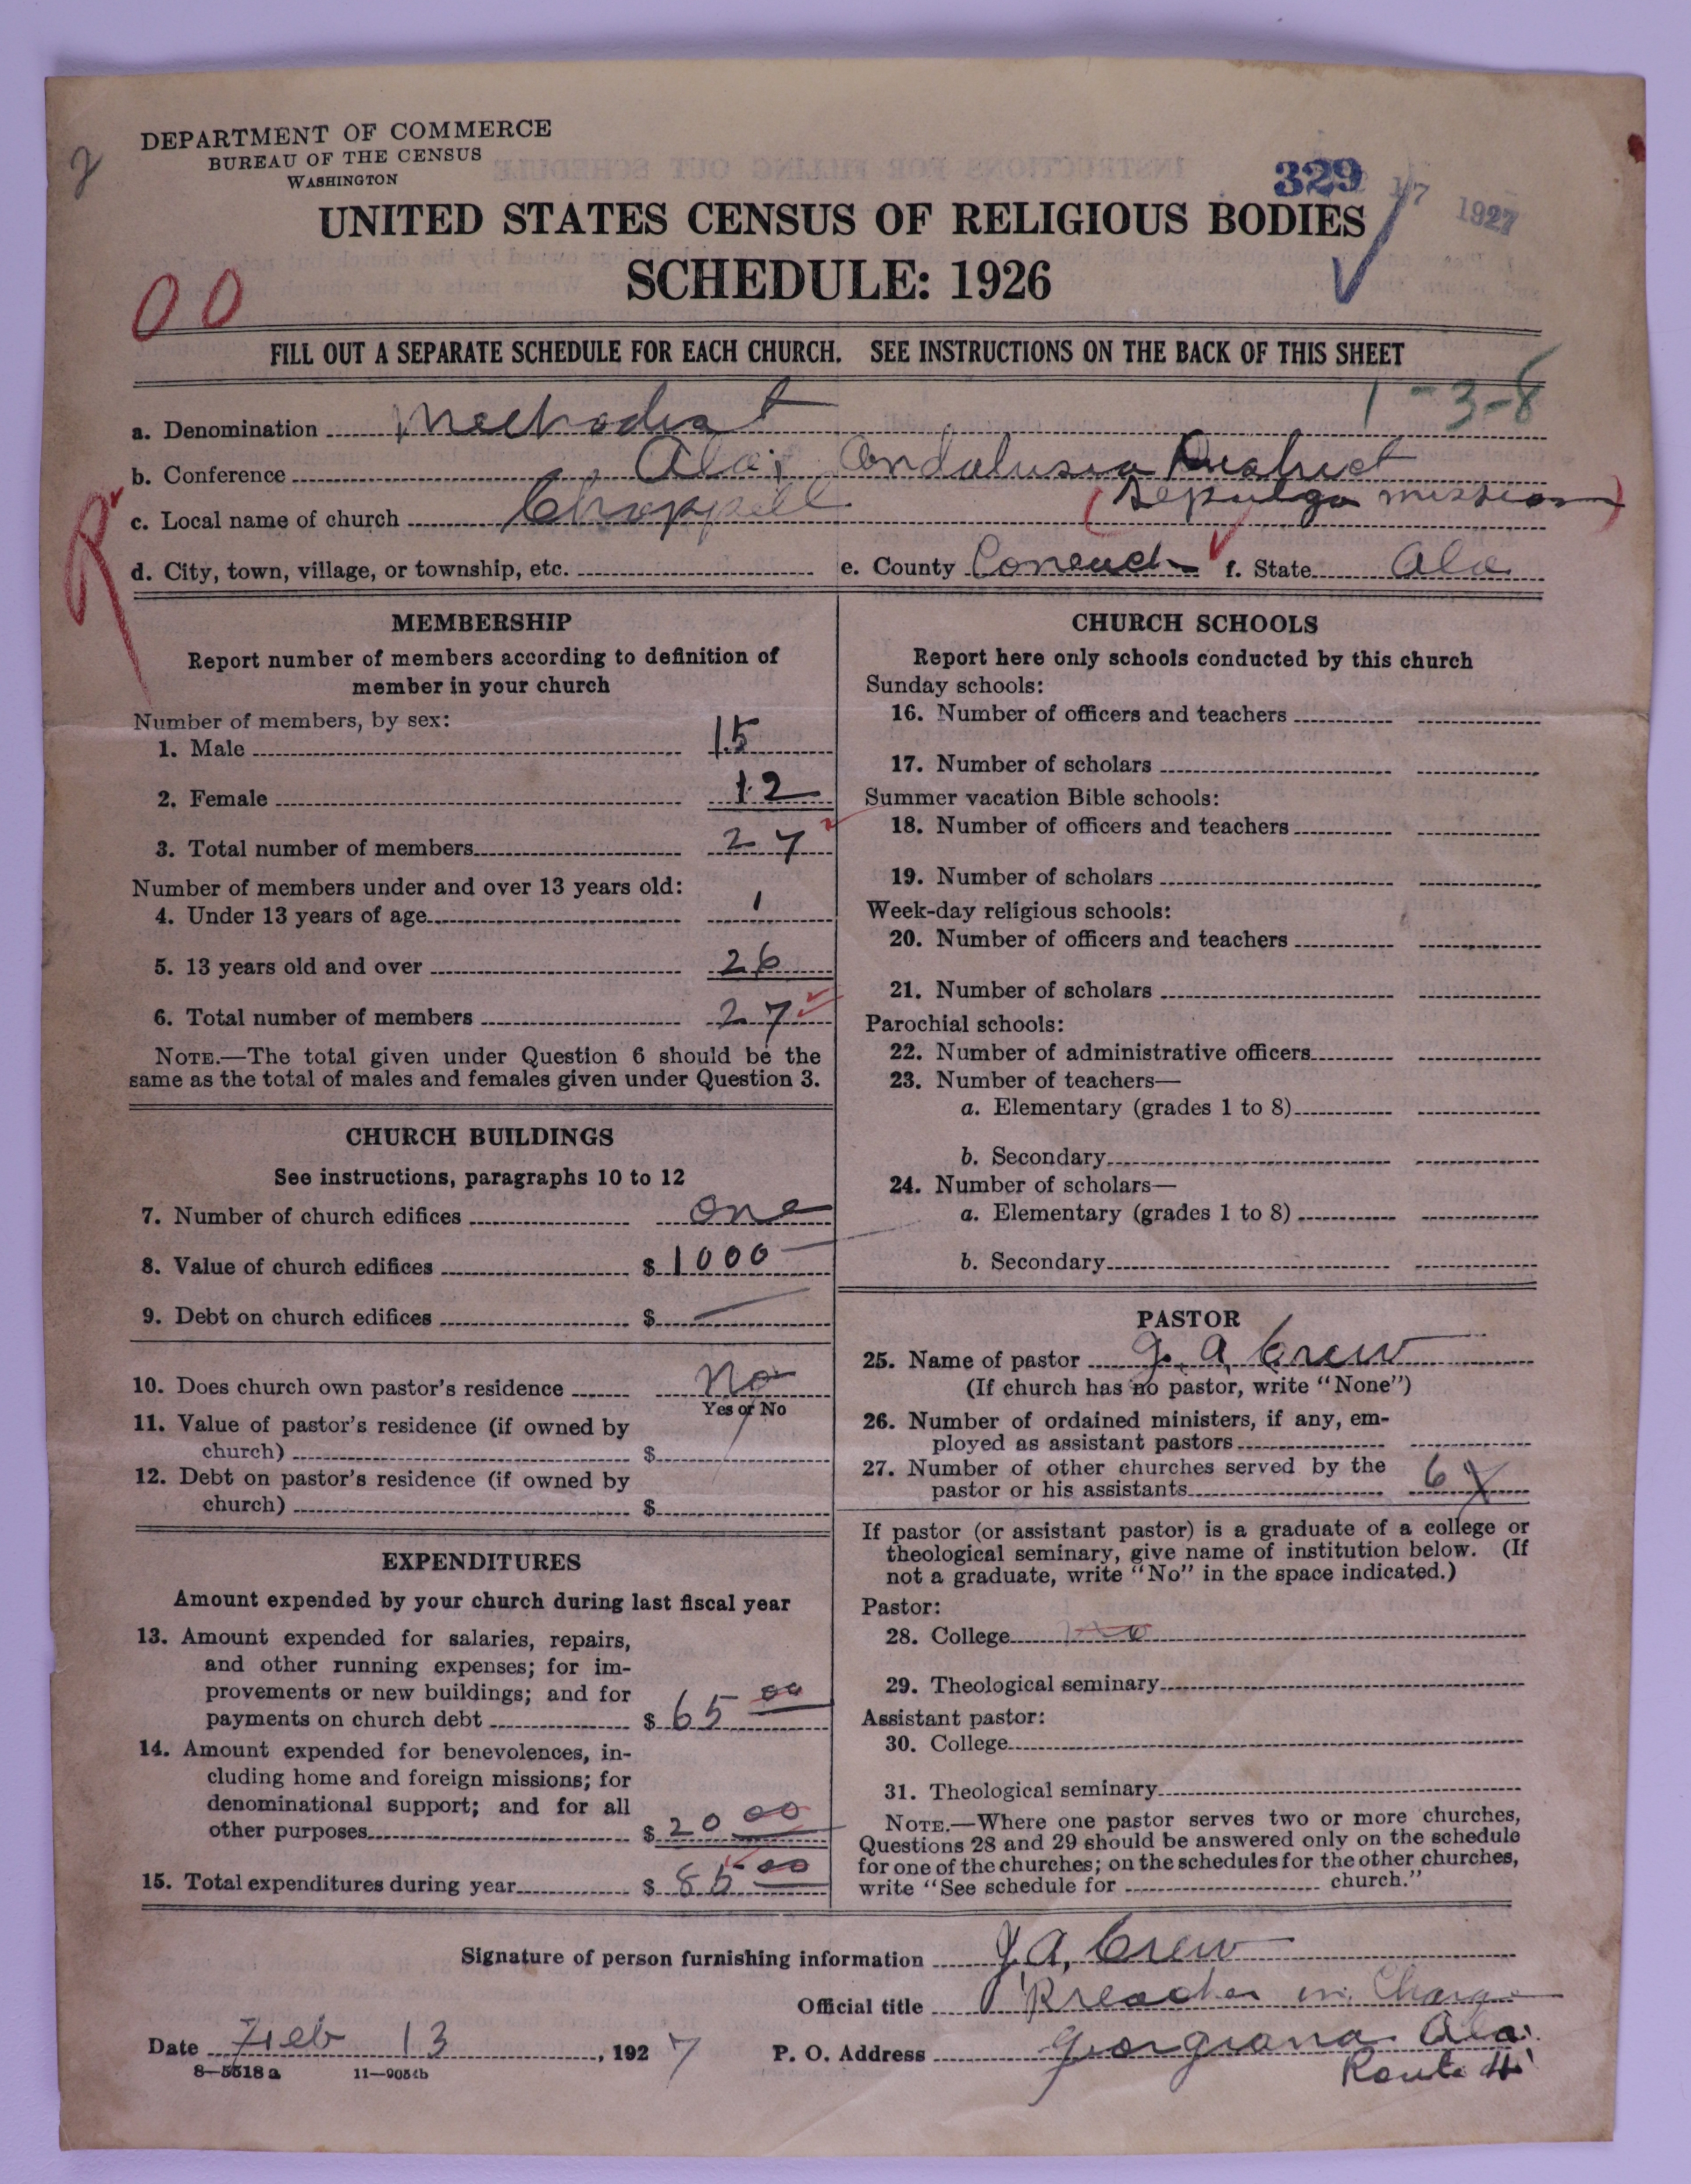 DEPARTMENT OF COMMERCE
BUREAU OF THE CENSUS
WASHINGTON
329
1927
UNITED STATES CENSUS OF RELIGIOUS BODIES
SCHEDULE: 1926
00
FILL OUT A SEPARATE SCHEDULE FOR EACH CHURCH. SEE INSTRUCTIONS ON THE BACK OF THIS SHEET
1-3-8
a. Denomination Methodist
b. Conference Ala; Andalusia District
c. Local name of church Chappell (Sepulga mission)
d. City, town, village, or township, etc.
e. County Conecuh f. State Ala
MEMBERSHIP
Report number of members according to definition of
member in your church
Number of members, by sex:
1. Male 15
2. Female 12
3. Total number of members 27
Number of members under and over 13 years old:
4. Under 13 years of age 1
5. 13 years old and over 26
6. Total number of members 27
NOTE.—The total given under Question 6 should be the
same as the total of males and females given under Question 3.
CHURCH BUILDINGS
See instructions, paragraphs 10 to 12
7. Number of church edifices one
8. Value of church edifices $ 1000
9. Debt on church edifices $ —
10. Does church own pastor's residence No
Yes or No
11. Value of pastor's residence (if owned by
church) $
12. Debt on pastor's residence (if owned by
church) $
EXPENDITURES
Amount expended by your church during last fiscal year
13. Amount expended for salaries, repairs,
and other running expenses; for im-
provements or new buildings; and for
payments on church debt $ 65 00
14. Amount expended for benevolences, in-
cluding home and foreign missions; for
denominational support; and for all
other purposes $ 20 00
15. Total expenditures during year $ 85 00
CHURCH SCHOOLS
Report here only schools conducted by this church
Sunday schools:
16. Number of officers and teachers
17. Number of scholars
Summer vacation Bible schools:
18. Number of officers and teachers
19. Number of scholars
Week-day religious schools:
20. Number of officers and teachers
21. Number of scholars
Parochial schools:
22. Number of administrative officers
23. Number of teachers—
a. Elementary (grades 1 to 8)
b. Secondary
24. Number of scholars—
a. Elementary (grades 1 to 8)
b. Secondary
PASTOR
25. Name of pastor J. A. Crew
(If church has no pastor, write "None")
26. Number of ordained ministers, if any, em-
ployed as assistant pastors
27. Number of other churches served by the
pastor or his assistants 6
If pastor (or assistant pastor) is a graduate of a college or
theological seminary, give name of institution below. (If
not a graduate, write "No" in the space indicated.)
Pastor:
28. College No
29. Theological seminary
Assistant pastor:
30. College
31. Theological seminary
NOTE.—Where one pastor serves two or more churches,
Questions 28 and 29 should be answered only on the schedule
for one of the churches; on the schedules for the other churches,
write "See schedule for church."
Signature of person furnishing information J. A, Crew
Official title Preacher in Charge
Date Feb 13, 1927
P. O. Address Georgiana Ala.
Route 4
8—5518 a 11—9054b